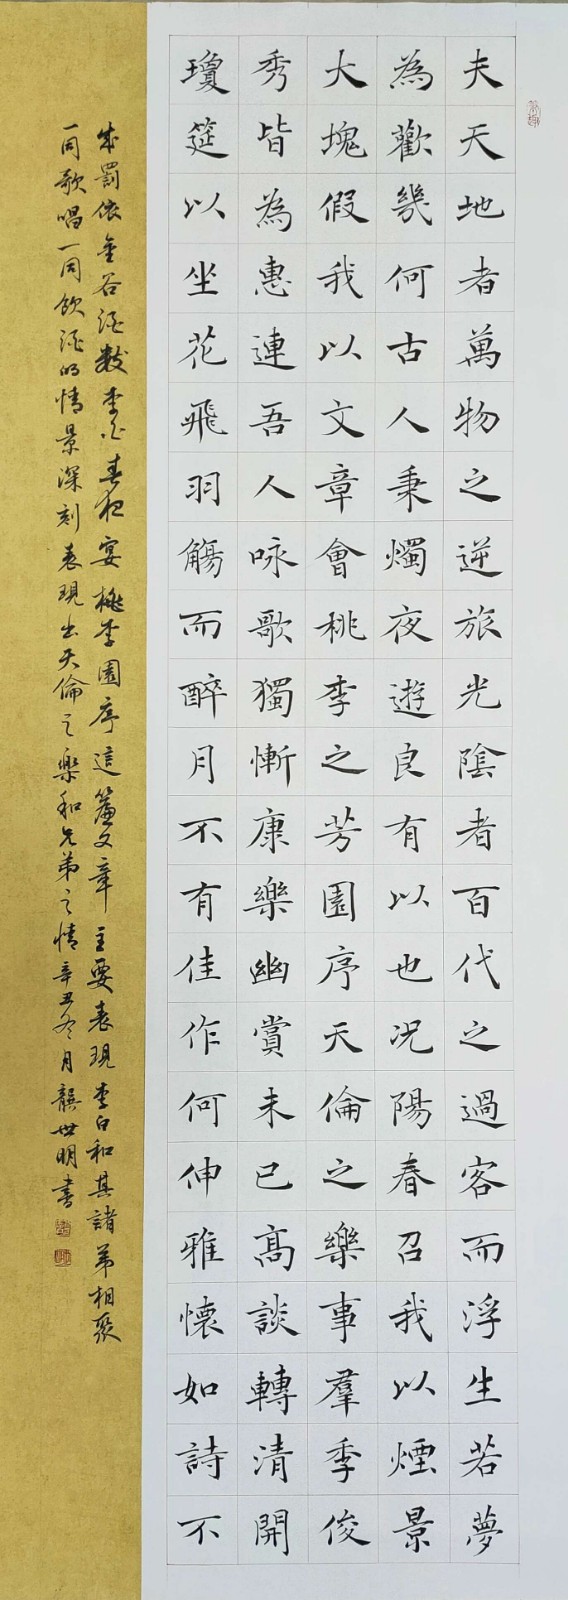 夫天地者萬物之逆旅光陰者百代之過客而浮生若夢
為歡幾何古人秉燭夜遊良有以也況陽春召我以煙景
大塊假我以文章會桃李之芳園序天倫之樂事羣季俊
秀皆為惠連吾人咏歌獨慚康樂幽賞未已高談轉清開
瓊筵以坐花飛羽觴而醉月不有佳作何伸雅懷如詩不
成罰依金谷酒數李白春夜宴桃李園序這篇文章主要表現李白和其諸弟相聚
一同歌唱一同飲酒的情景深刻表現出天倫之樂和兄弟之情辛丑冬月龔世明書